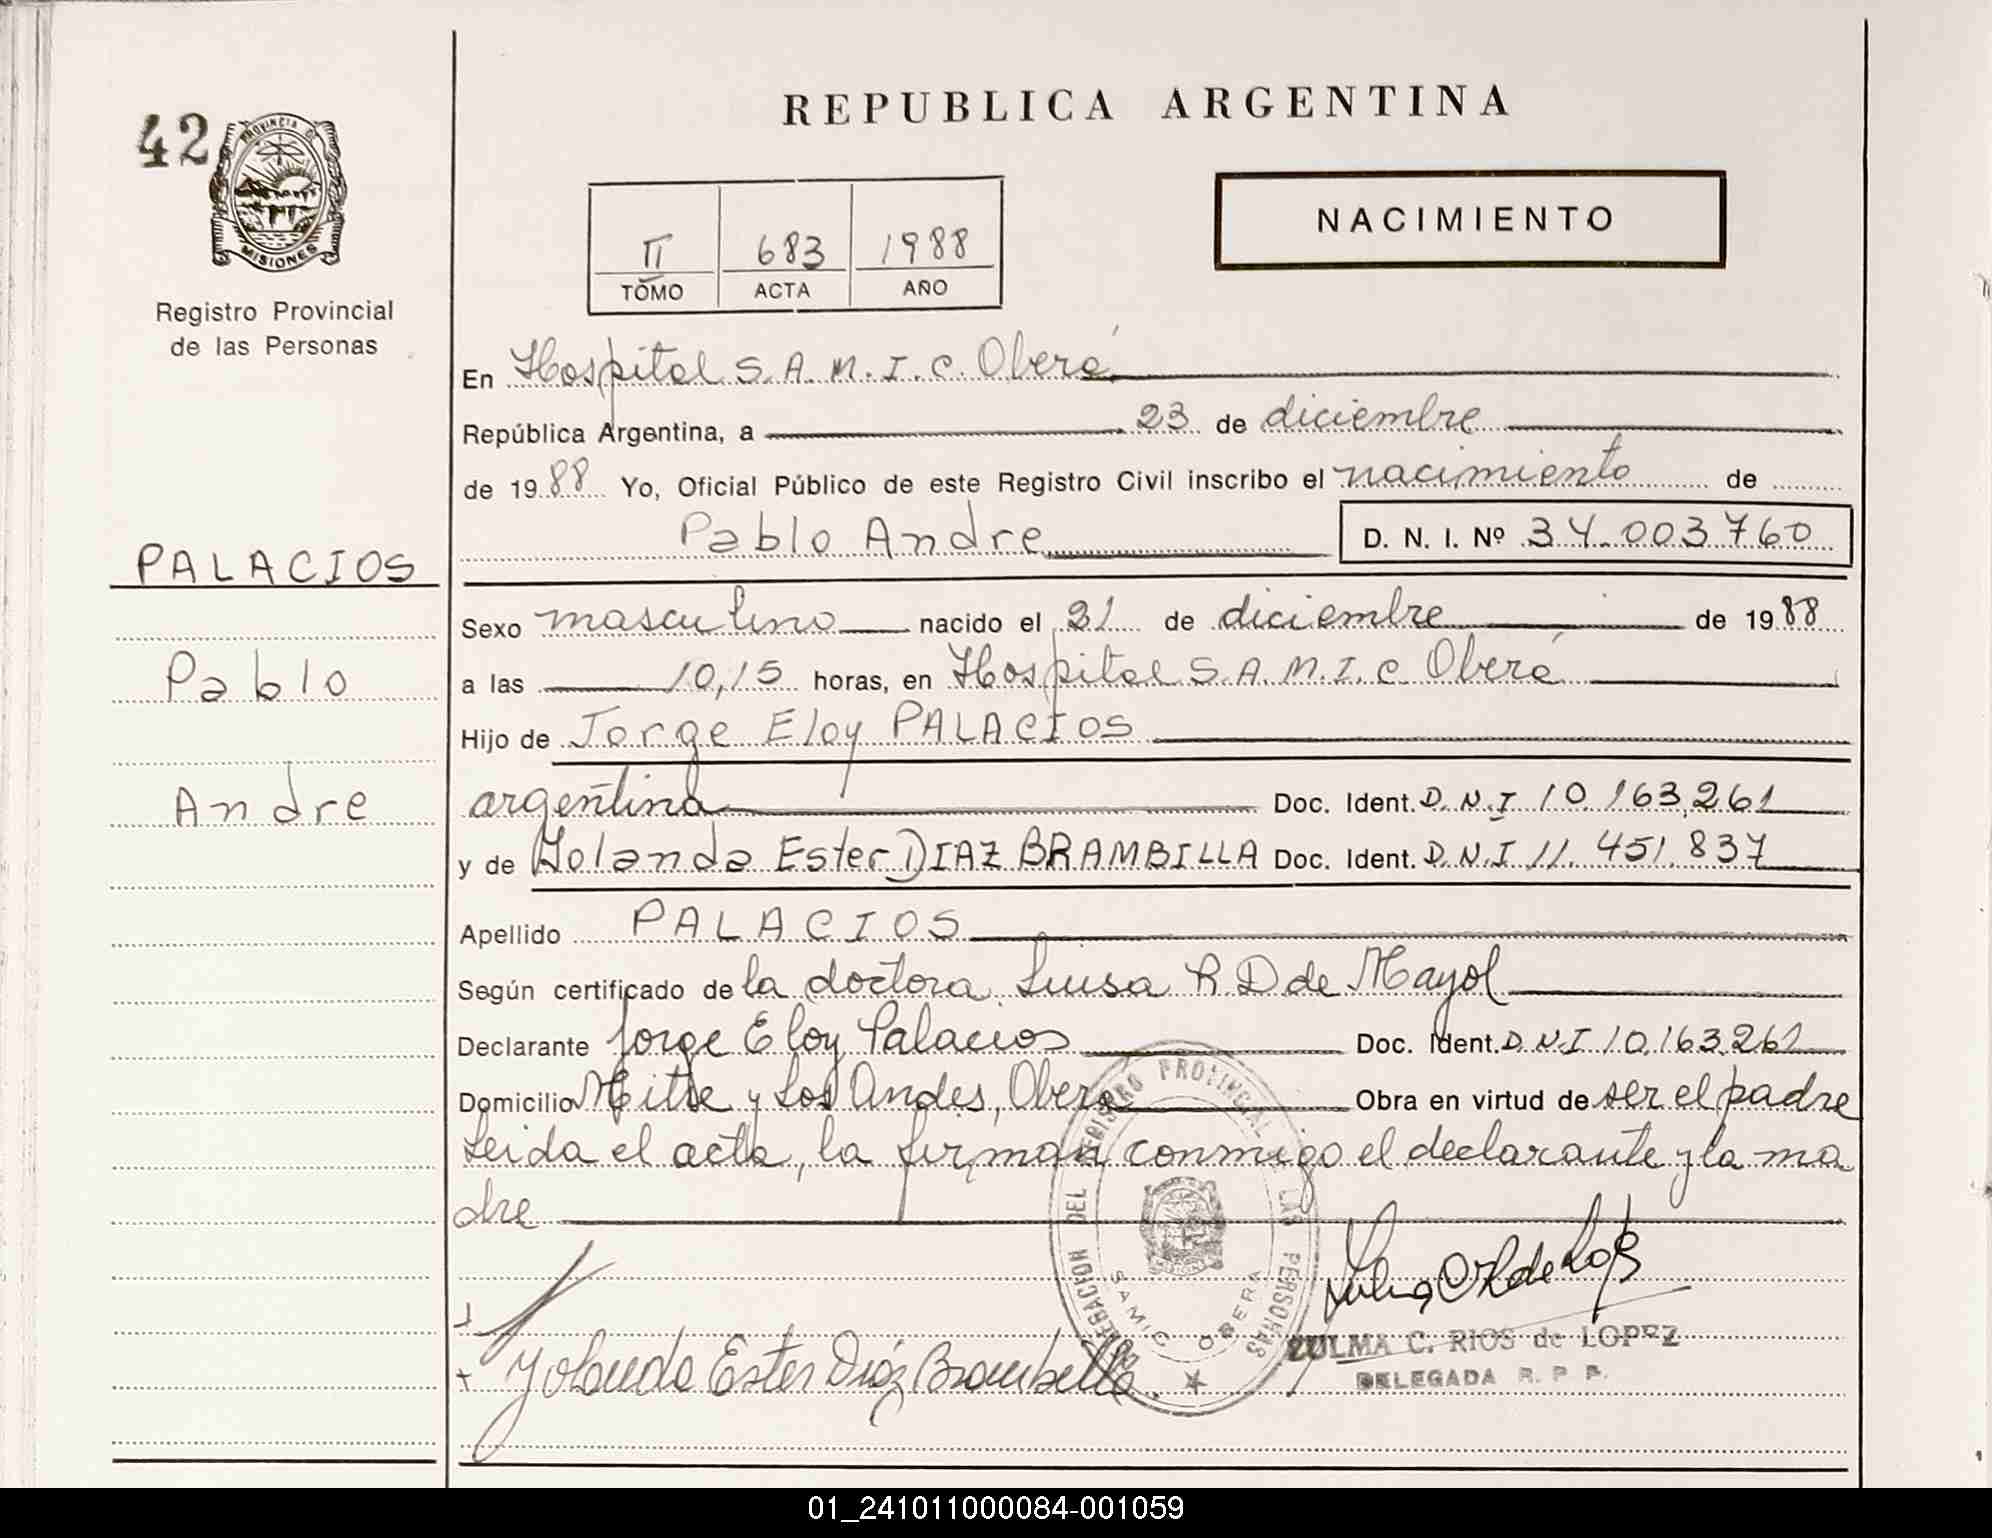 42
PROVINCIA DE
MISIONES
Registro Provincial
de las Personas
PALACIOS
Pablo
Andre
REPUBLICA ARGENTINA
II 683 1988
TOMO ACTA AÑO
NACIMIENTO
En Hospital S.A.M.I.C. Oberá
República Argentina, a 23 de diciembre
de 1988 Yo, Oficial Público de este Registro Civil inscribo el nacimiento de
Pablo Andre D. N. I. Nº 34.003760
Sexo masculino nacido el 21 de diciembre de 1988
a las 10,15 horas, en Hospital S.A.M.I.C. Oberá
Hijo de Jorge Eloy PALACIOS
argentina Doc. Ident. D.N.I 10.163.261
y de Yolanda Ester DIAZ BRAMBILLA Doc. Ident. D.N.I 11.451.837
Apellido PALACIOS
Según certificado de la doctora Luisa R.D de Mayol
Declarante Jorge Eloy Palacios Doc. Ident. D.N.I 10.163.261
Domicilio Mitre y Los Andes, Oberá Obra en virtud de ser el padre
Leida el acta, la firman conmigo el declarante y la ma
dre
DEL REGISTRO PROVINCIAL DE LAS PERSONAS
SAMIC OBERA
Yolanda Ester Díaz Brambilla
ZULMA C. RIOS de LOPEZ
DELEGADA R. P. P.
01_241011000084-001059